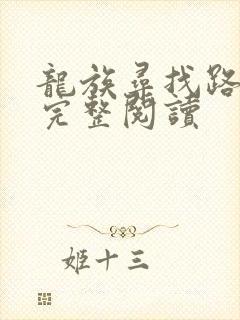 龍族尋找路
完整閱讀
姬十三